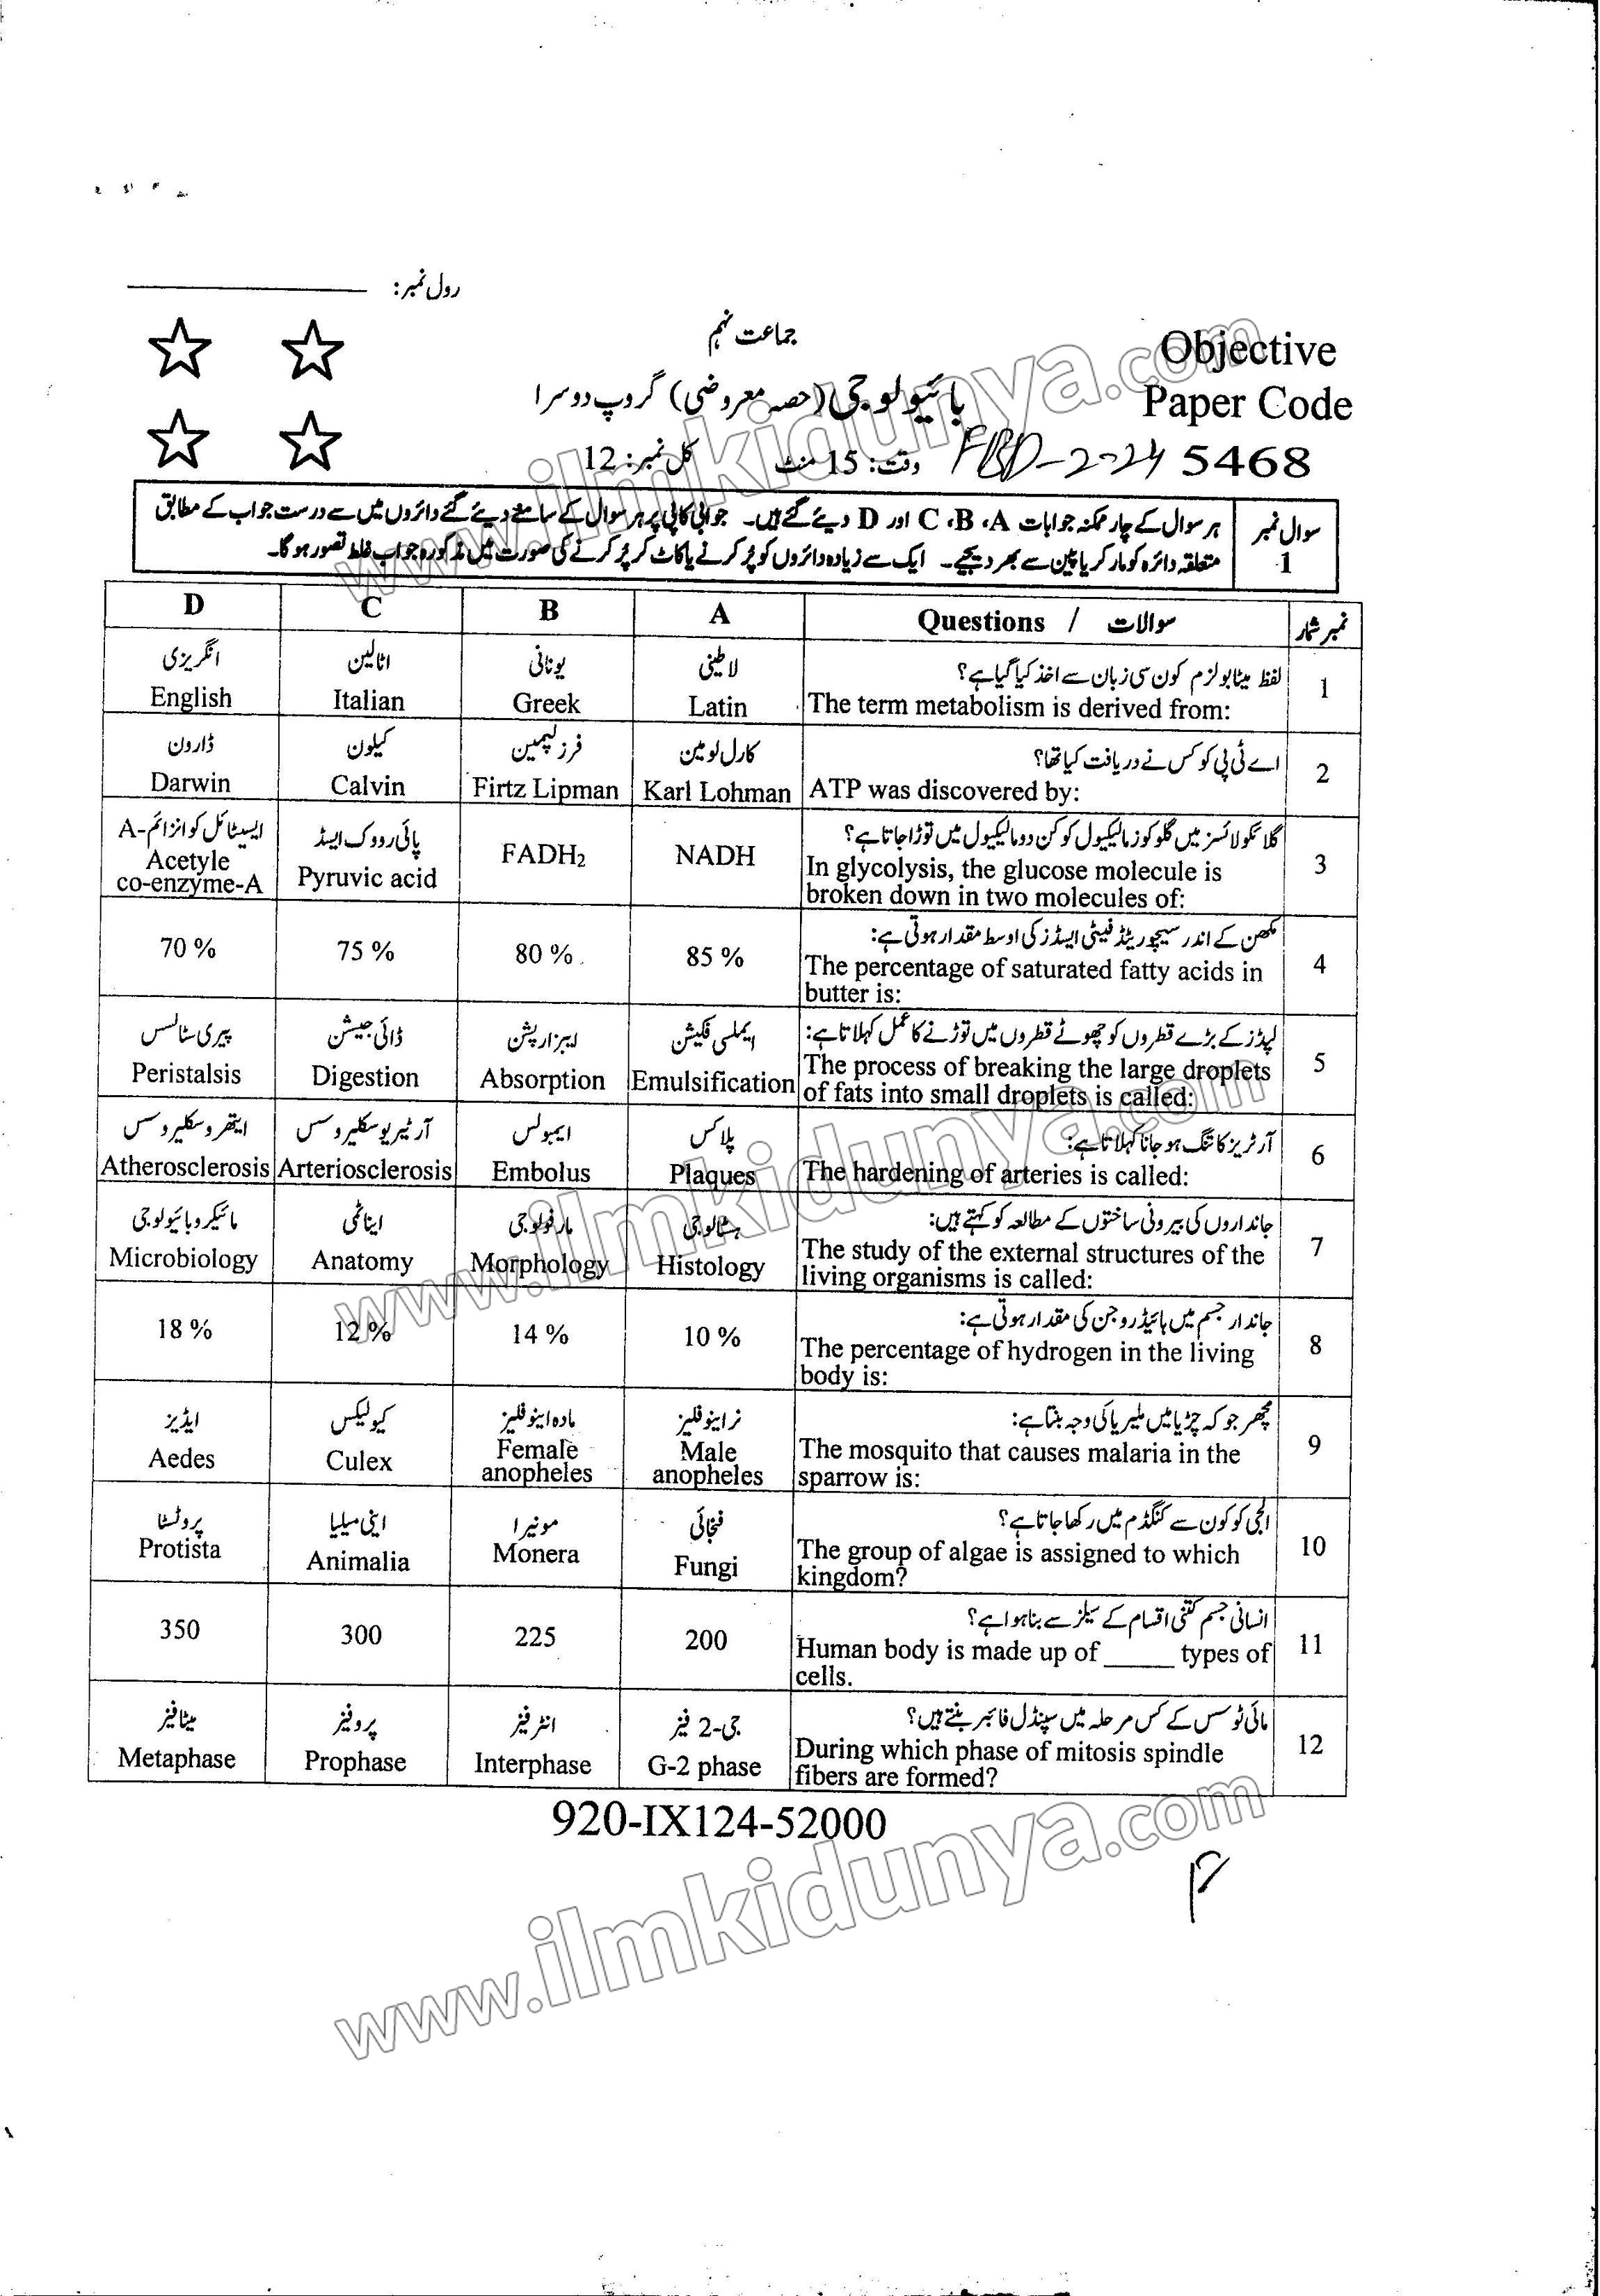 رول نمبر:
جماعت نہم
بائیولوجی (حصہ معروضی) گروپ دوسرا
وقت: 15 منٹ
کل نمبر: 12
Objective
Paper Code
FBD-2-24 5468
سوال نمبر 1
ہر سوال کے چار ممکنہ جوابات A، B، C اور D دیئے گئے ہیں۔ جوابی کاپی پر ہر سوال کے سامنے دیئے گئے دائروں میں سے درست جواب کے مطابق
متعلقہ دائرہ کو مارکر یا پین سے بھر دیجیے۔ ایک سے زیادہ دائروں کو پُر کرنے یا کاٹ کر پُر کرنے کی صورت میں مذکورہ جواب غلط تصور ہوگا۔
نمبر شمار سوالات / Questions A B C D
1
لفظ میٹابولزم کون سی زبان سے اخذ کیا گیا ہے؟
The term metabolism is derived from:
لاطینی یونانی اٹالین انگریزی
Latin Greek Italian English
2
اے ٹی پی کو کس نے دریافت کیا تھا؟
ATP was discovered by:
کارل لومین فرز لپمین کیلون ڈارون
Karl Lohman Firtz Lipman Calvin Darwin
3
گلائیکولائسز میں گلوکوز مالیکیول کو کن دو مالیکیول میں توڑا جاتا ہے؟
In glycolysis, the glucose molecule is
broken down in two molecules of:
NADH FADH₂
پائی رووک ایسڈ
Pyruvic acid
ایسیٹائل کو انزائم-A
Acetyle
co-enzyme-A
4
مکھن کے اندر سیچوریٹڈ فیٹی ایسڈز کی اوسط مقدار ہوتی ہے:
The percentage of saturated fatty acids in
butter is:
85 % 80 % 75 % 70 %
5
لپڈز کے بڑے قطروں کو چھوٹے قطروں میں توڑنے کا عمل کہلاتا ہے:
The process of breaking the large droplets
of fats into small droplets is called:
ایملسی فکیشن ایبزارپشن ڈائی جیشن پیری سٹالسس
Emulsification Absorption Digestion Peristalsis
6
آرٹریز کا تنگ ہو جانا کہلاتا ہے:
The hardening of arteries is called:
پلاکس ایمبولس آرٹیریوسکلیروسس ایتھروسکلیروسس
Plaques Embolus Arteriosclerosis Atherosclerosis
7
جانداروں کی بیرونی ساختوں کے مطالعہ کو کہتے ہیں:
The study of the external structures of the
living organisms is called:
ہسٹالوجی مارفولوجی ایناٹمی مائیکروبائیولوجی
Histology Morphology Anatomy Microbiology
8
جاندار جسم میں ہائیڈروجن کی مقدار ہوتی ہے:
The percentage of hydrogen in the living
body is:
10 % 14 % 12 % 18 %
9
مچھر جو کہ چڑیا میں ملیریا کی وجہ بنتا ہے:
The mosquito that causes malaria in the
sparrow is:
نر اینوفلیز مادہ اینوفلیز کیولیکس ایڈیز
Male
anopheles
Female
anopheles
Culex Aedes
10
الجی کو کون سے کنگڈم میں رکھا جاتا ہے؟
The group of algae is assigned to which
kingdom?
فنجائی مونیرا اینی میلیا پروٹسٹا
Fungi Monera Animalia Protista
11
انسانی جسم کتنی اقسام کے سیلز سے بنا ہوا ہے؟
Human body is made up of _____ types of
cells.
200 225 300 350
12
مائی ٹوسس کے کس مرحلہ میں سپنڈل فائبر بنتے ہیں؟
During which phase of mitosis spindle
fibers are formed?
جی-2 فیز انٹرفیز پروفیز میٹافیز
G-2 phase Interphase Prophase Metaphase
920-IX124-52000
www.ilmkidunya.com
www.ilmkidunya.com
www.ilmkidunya.com